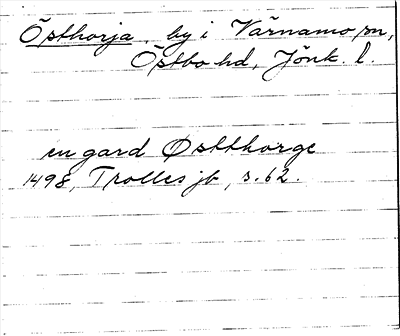 Östhorja, by i Värnamo sn,
Östbo hd, Jönk. l.
en gard Østthorge
1498, Trolles jb, s. 62.